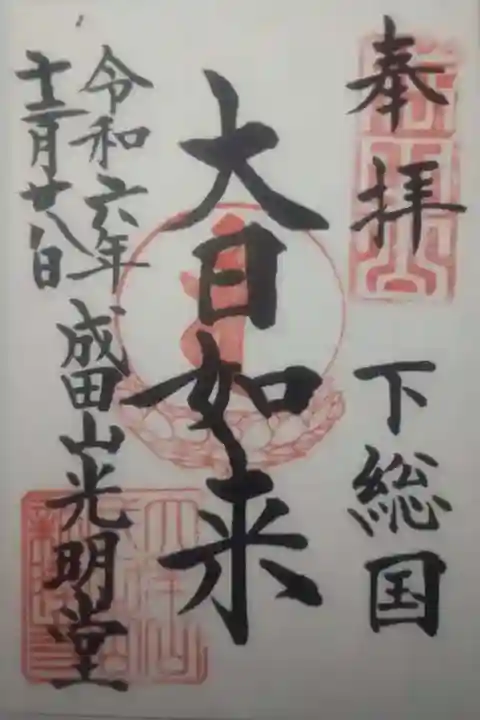 奉拝
下総国
大日如来
令和六年
十二月廿八日
成田山光明堂